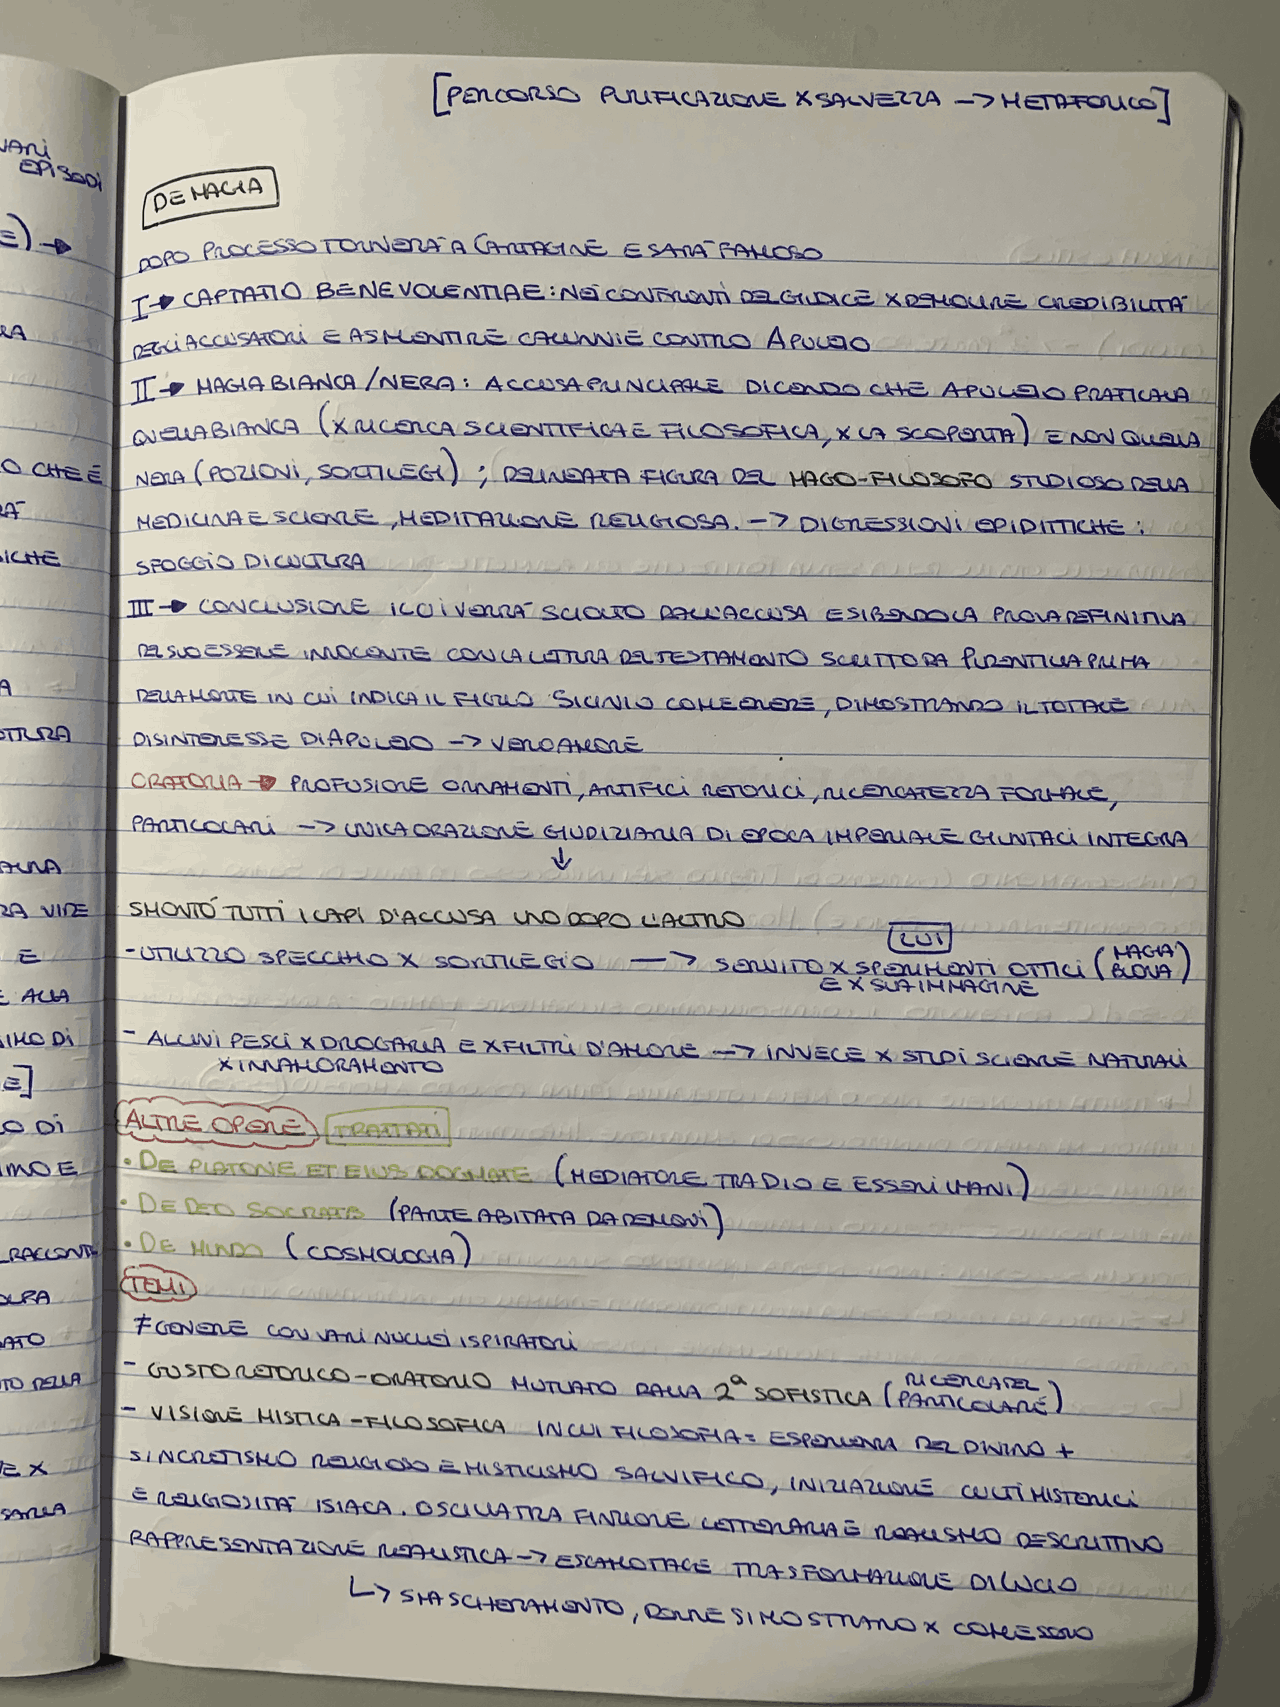 [PERCORSO PURIFICAZIONE X SALVEZZA -> METAFORICO]
VARI
EPISODI
DE MAGIA
E) ->
DOPO PROCESSO TORNERÀ A CARTAGINE E SARÀ FAMOSO
I -> CAPTATIO BENEVOLENTIAE: NEI CONFRONTI DEL GIUDICE X DEMOLIRE CREDIBILITÀ
DEGLI ACCUSATORI E A SMENTIRE CALUNNIE CONTRO APULEIO
II -> MAGIA BIANCA/NERA: ACCUSA PRINCIPALE DICENDO CHE APULEIO PRATICAVA
QUELLA BIANCA (X RICERCA SCIENTIFICA E FILOSOFICA, X LA SCOPERTA) E NON QUELLA
O CHE È
NERA (POZIONI, SORTILEGI); DELINEATA FIGURA DEL MAGO-FILOSOFO STUDIOSO DELLA
RÀ
MEDICINA E SCIENZE, MEDITAZIONE RELIGIOSA. -> DIGRESSIONI EPIDITTICHE:
DICHE
SFOGGIO DI CULTURA
III -> CONCLUSIONE IL CUI VERRÀ SCIOLTO DALL'ACCUSA ESIBENDO LA PROVA DEFINITIVA
DEL SUO ESSERE INNOCENTE CON LA LETTURA DEL TESTAMENTO SCRITTO DA PUDENTILLA PRIMA
DELLA MORTE IN CUI INDICA IL FIGLIO SICINIO COME EREDE, DIMOSTRANDO IL TOTALE
DISINTERESSE DI APULEIO -> VERO AMORE
ORATORIA -> PROFUSIONE ORNAMENTI, ARTIFICI RETORICI, RICERCATEZZA FORMALE,
PARTICOLARI -> UNICA ORAZIONE GIUDIZIARIA DI EPOCA IMPERIALE GIUNTACI INTEGRA
↓
RA VIDE
SMONTÒ TUTTI I CAPI D'ACCUSA UNO DOPO L'ALTRO
LUI
E
- UTILIZZO SPECCHIO X SORTILEGIO -> SERVITO X SPERIMENTI OTTICI (MAGIA BUONA)
E X SUA IMMAGINE
E ALLA
- ALCUNI PESCI X DROGARLA E X FILTRI D'AMORE -> INVECE X STUDI SCIENZE NATURALI
X INNAMORAMENTO
IMO DI
E]
O DI
ALTRE OPERE TRATTATI
IMO E
• DE PLATONE ET EIUS DOGMATE (MEDIATORE TRA DIO E ESSERI UMANI)
• DE DEO SOCRATIS (PARTE ABITATA DA DEMONI)
RACCONTI
• DE MUNDO (COSMOLOGIA)
TEMI
≠ GENERE CON VARI NUCLEI ISPIRATORI
TO DELLA
- GUSTO RETORICO-ORATORIO MUTUATO DALLA 2ª SOFISTICA (RICERCA DEL PARTICOLARE)
- VISIONE MISTICA-FILOSOFICA IN CUI FILOSOFIA = ESPERIENZA DEL DIVINO +
E X
SINCRETISMO RELIGIOSO E MISTICISMO SALVIFICO, INIZIAZIONE CULTI MISTERICI
E RELIGIOSITÀ ISIACA. OSCILLA TRA FINZIONE LETTERARIA E REALISMO DESCRITTIVO
RAPPRESENTAZIONE REALISTICA -> ESCAMOTAGE TRASFORMAZIONE DI LUCIO
↳ SMASCHERAMENTO, DONNE SI MOSTRANO X COME SONO